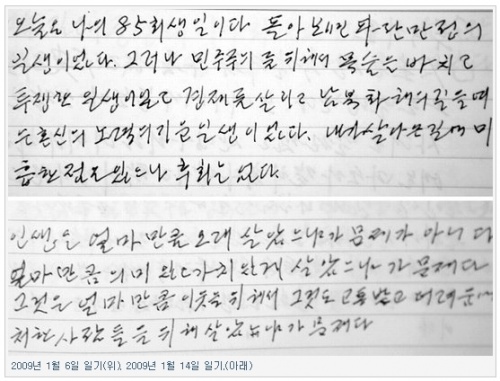 오늘은 나의 85회 생일이다 돌아보면 파란만정의
일생이었다. 그러나 민주주의를 위해서 목숨을 바치고
투쟁한 일생이었고 경제를 살리고 남북화해의 길을 여
는 혼신의 노력의 기울인 일생이었다. 내가 살아온 길에 미
흡한 점은 있으나 후회는 없다.
인생은 얼마만큼 오래 살았느냐가 문제가 아니다
얼마만큼 의미 있고 가치있게 살았느냐가 문제다
그것은 얼마만큼 이웃을 위해서 그것도 고통받고 어려움에
처한 사람들을 위해 살았느냐가 문제다
2009년 1월 6일 일기(위), 2009년 1월 14일 일기.(아래)